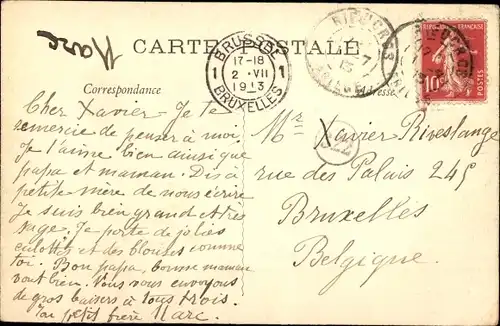 Marc
CARTE POSTALE
BRUSSEL
17-18
1 2 · VII 1
19 13
BRUXELLES
REPUBLIQUE FRANÇAISE
10
Correspondance
Adresse
Cher Xavier - Je te
remercie de penser à moi.
Je t'aime bien ainsi que
papa et maman. Dis à
petite mère de nous écrire
Je suis bien grand et très
sage. Je porte de jolies
culottes et des blouses comme
toi. Bon papa, bonne maman
vont bien. Nous vous envoyons
de gros baisers à tous trois.
Ton petit frère Marc.
Mr Xavier Riveslange
rue des Palais 245
Bruxelles
Belgique.